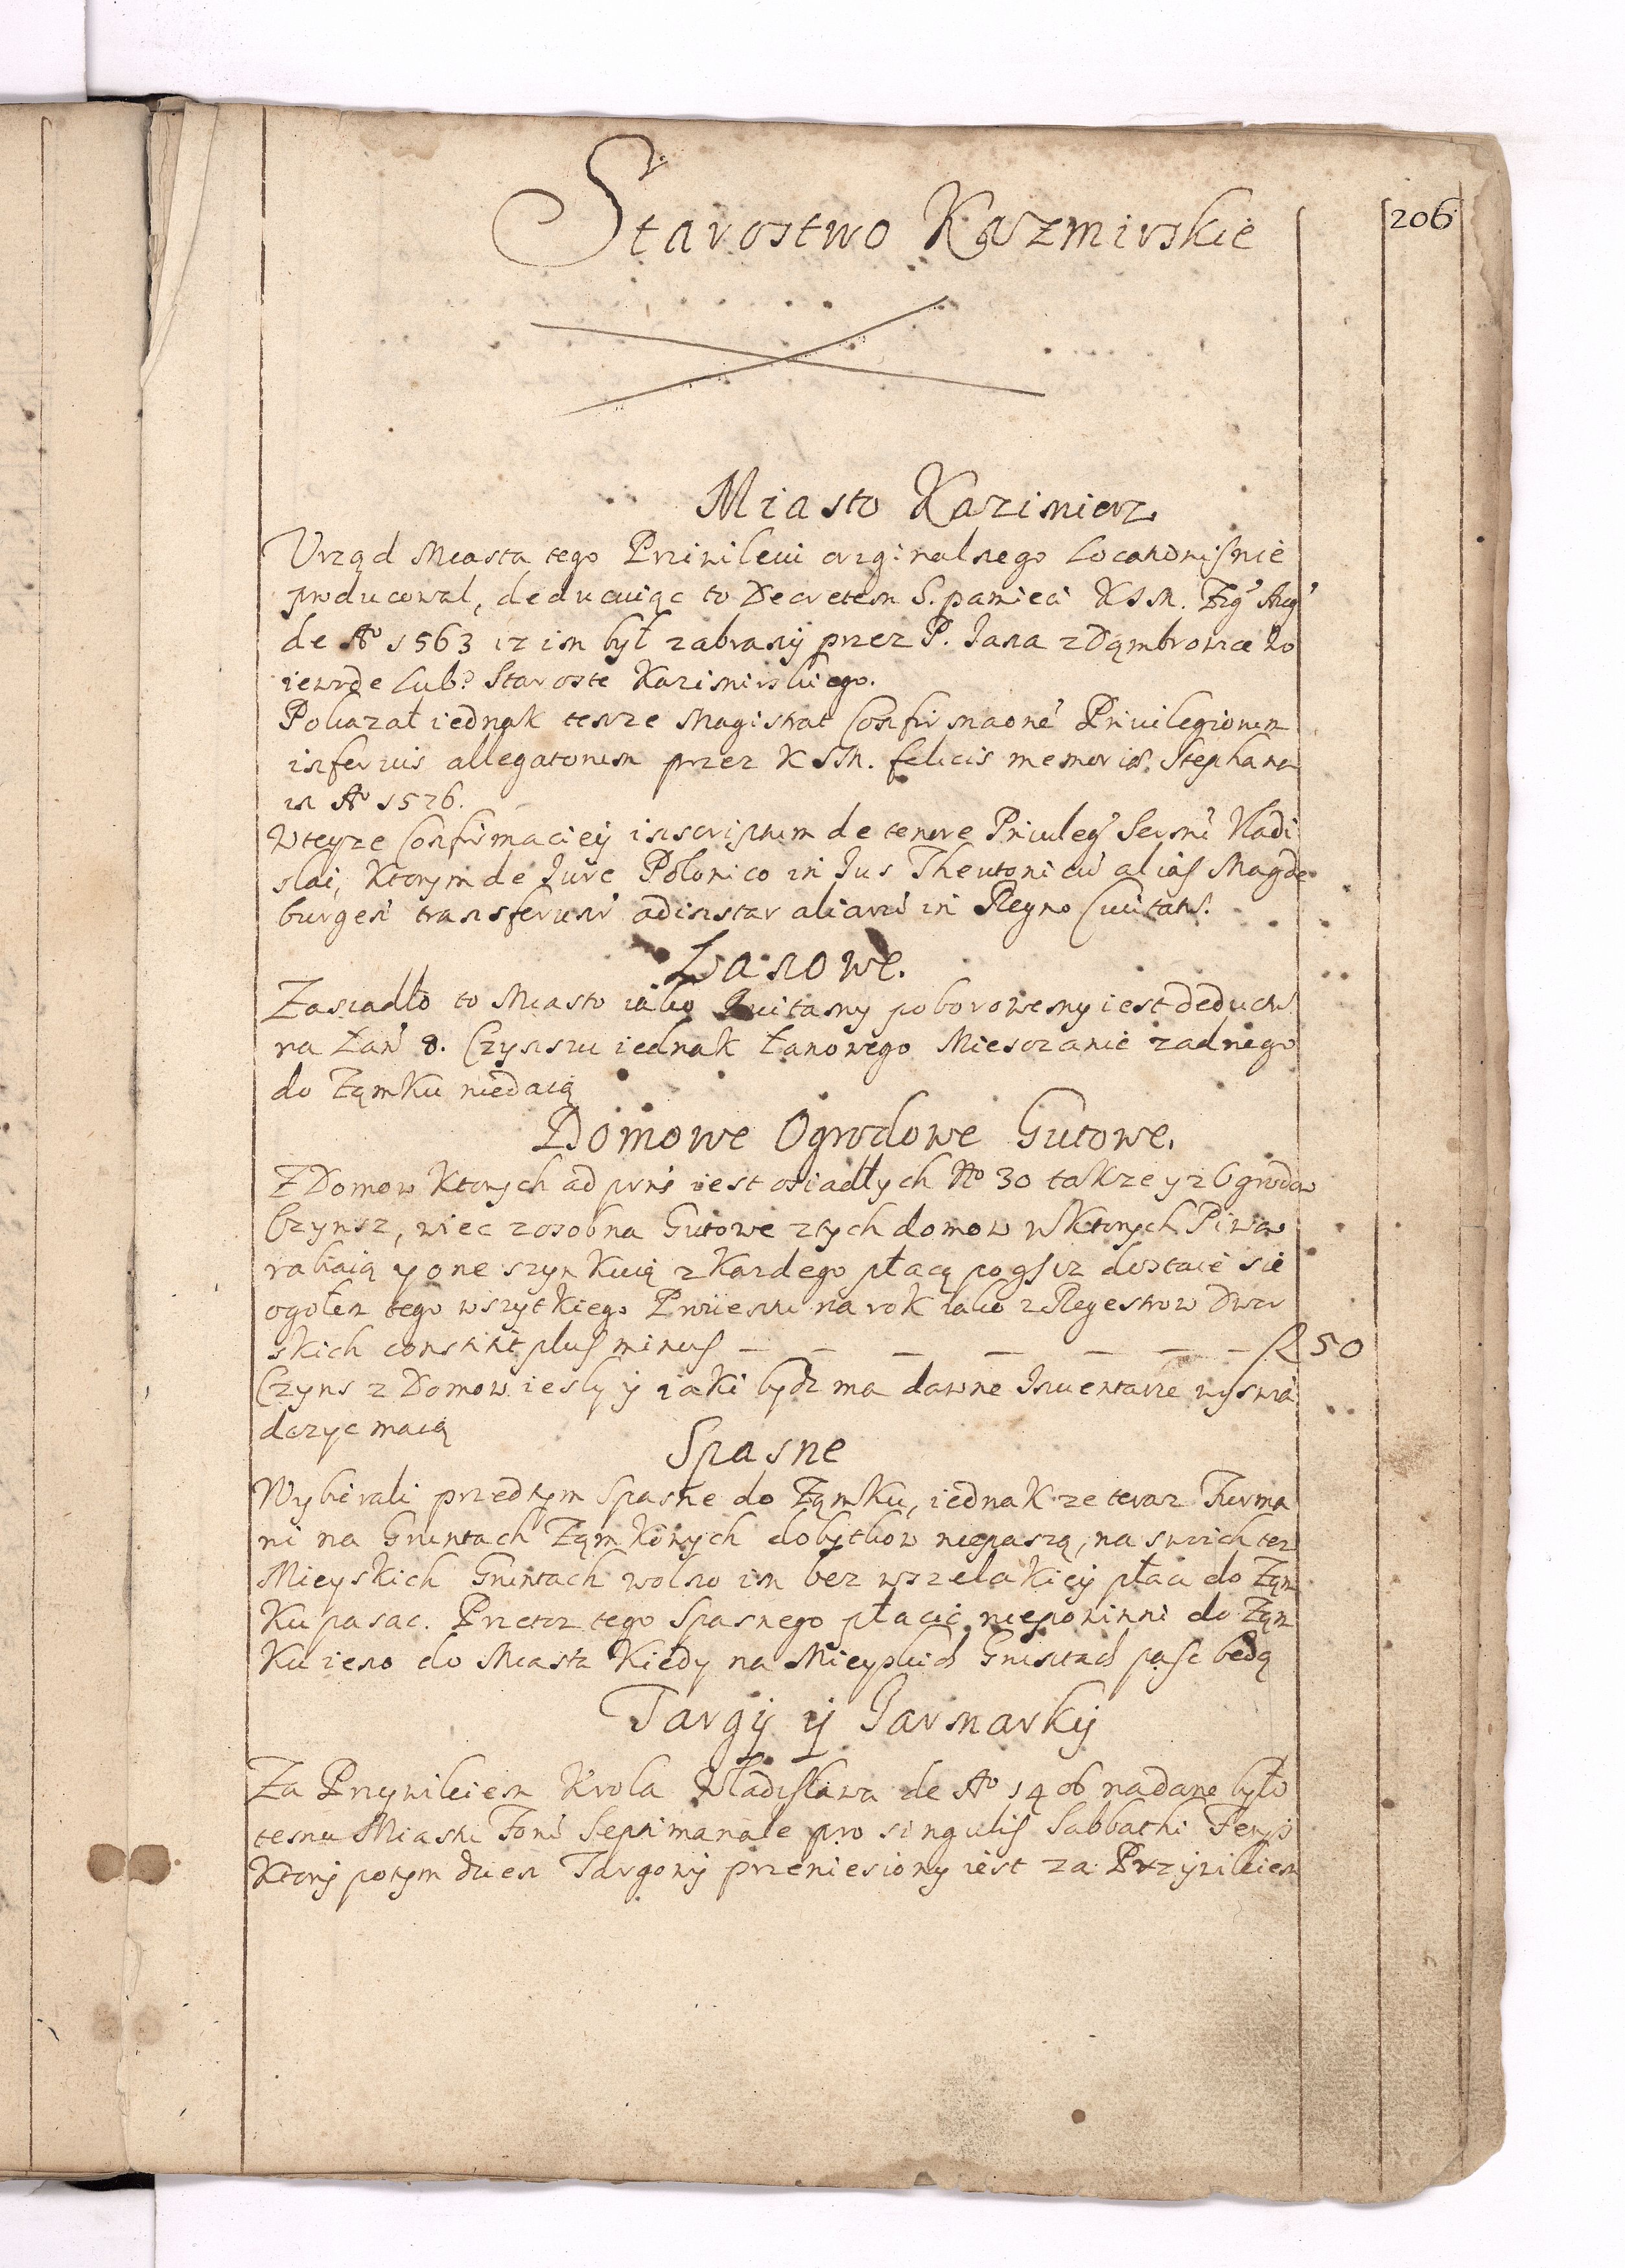 Starostwo Kazmirskie
206
Miasto Kazimierz
Urząd Miasta tego Przivileiu originalnego Locationis nie
producował, deducuiąc to Decretem S. pamieci KJM. Zygᵗ Augᵗ
de Aᵒ 1563 iz im był zabrany przez P. Jana z Dąmbrowice Wo
iewode Lub? Staroste Kazimirskiego.
Pokazał iednak tenze Magistrat Confirmaone Privilegiorum
inferius allegatorum przez KJM. felicis memoriæ Stephana
in Aᵒ 1576.
W teyze Confirmaciey inscriptum de tenore Priuileg Sersmi Vladi
slai, Ktorym de Jure Polonico in Jus Theutonicū alias Magde
burgen transferunt adinstar aliarū in Regno Ciuitatū.
Łanowe.
Zasiadło to Miasto iako Quitamy poborowemy iest deduct
na Łan 8. Czynszu iednak Łanowego Miesczanie zadnego
do Ząmku niedaią
Domowe Ogrodowe Gutowe.
Z Domow Ktorych ad pns iest osiadłych Nᵒ 30 takze y z Ogrodow
Czynsz, wiec zosobna Gutowe z tych domow w Ktorych Piwa
rabiaią y one szynkuią z Kazdego płacą po gsz dostaie sie
ogołem tego wszytkiego Prouentu na rok iako z Regestrow Dwor
skich constitit plus minus — — — — — — — fl 50
Czyns z Domow iesly y iaki bydz ma dawne Inuentarze wyswia
dczyc maią
Spasne
Wybierali przedtym Spasne do Ząmku, iednak ze teraz Furma
ni na Gruntach Ząmkowych dobytkow niepaszą, na swoich tez
Mieyskich Gruntach wolno im bez wszelakiey płaci do Ząm
Ku pasac. Przetoz tego Spasnego płacic niepowinni do Ząm
Ku ieno do Miasta Kiedy na Mieyskich Gruntach paśc bedą
Targy y Jarmarky
Za Przywileiem Krola Władisława de Aᵒ 1406 nadane było
temu Miastu Forū Septimanale pro singulis Sabbathi Ferys
Ktory potym dzien Targowy przeniesiony iest za Przywileiem